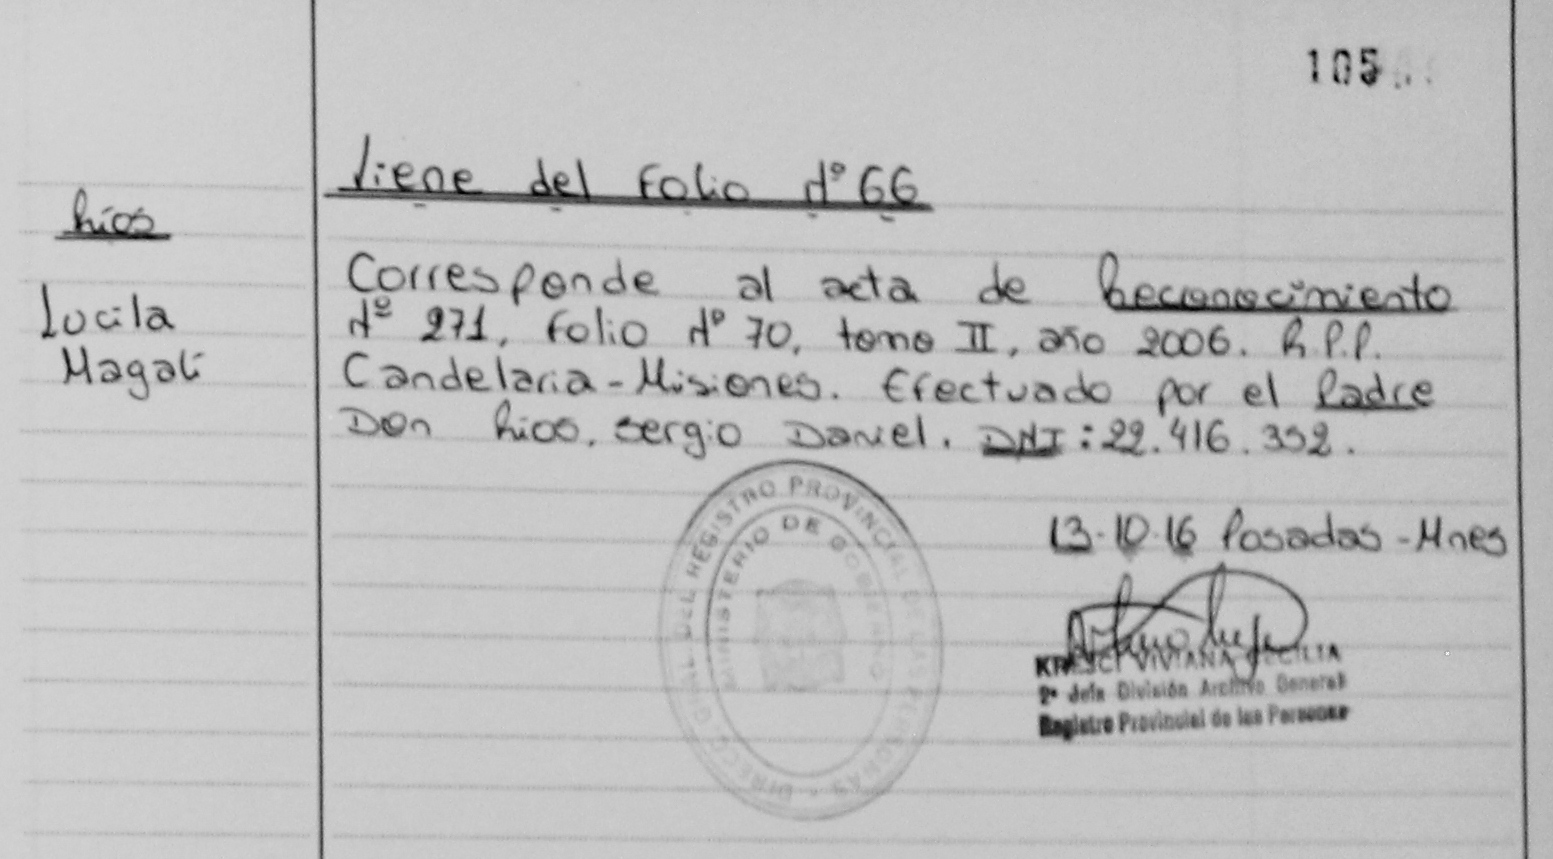 105
Viene del Folio Nº 66
Ríos
Lucila
Magalí
Corresponde al acta de Reconocimiento
Nº 271, Folio Nº 70, tomo II, año 2006. R.P.P.
Candelaria - Misiones. Efectuado por el Padre
Don Ríos, Sergio Daniel. DNI: 22.416.392.
DIRECC. GRAL. DEL REGISTRO PROVINCIAL DE LAS PERSONAS
MINISTERIO DE GOBIERNO
13.10.16 Posadas - Mnes
VIVIANA CECILIA
2º Jefa División Archivo General
Registro Provincial de las Personas